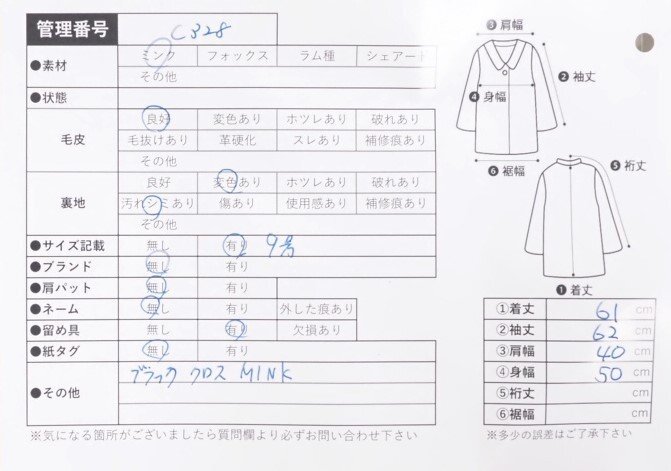 管理番号 C328
●素材 ミンク フォックス ラム種 シェアード
その他
●状態
毛皮 良好 変色あり ホツレあり 破れあり
毛抜けあり 革硬化 スレあり 補修痕あり
その他
裏地 良好 変色あり ホツレあり 破れあり
汚れシミあり 傷あり 使用感あり 補修痕あり
その他
●サイズ記載 無し 有り 9号
●ブランド 無し 有り
●肩パット 無し 有り
●ネーム 無し 有り 外した痕あり
●留め具 無し 有り 欠損あり
●紙タグ 無し 有り
●その他 ブラック クロス MINK
※気になる箇所がございましたら質問欄より必ずお問い合わせ下さい
❸肩幅
❷袖丈
❹身幅
❻裾幅
❺裄丈
❶着丈
①着丈 61 cm
②袖丈 62 cm
③肩幅 40 cm
④身幅 50 cm
⑤裄丈 cm
⑥裾幅 cm
※多少の誤差はご了承下さい